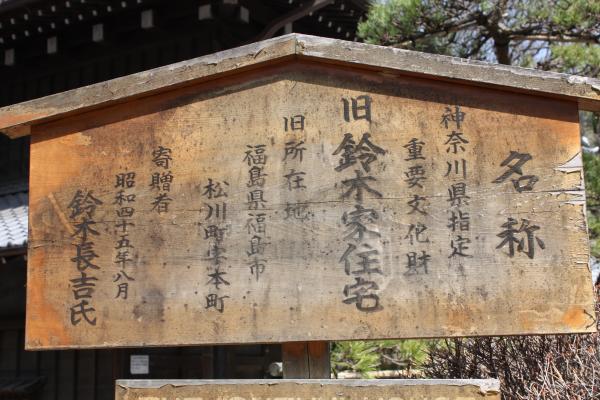 名称
神奈川県指定
重要文化財
旧鈴木家住宅
旧所在地
福島県福島市
松川町字本町
寄贈者
昭和四十五年八月
鈴木長吉氏